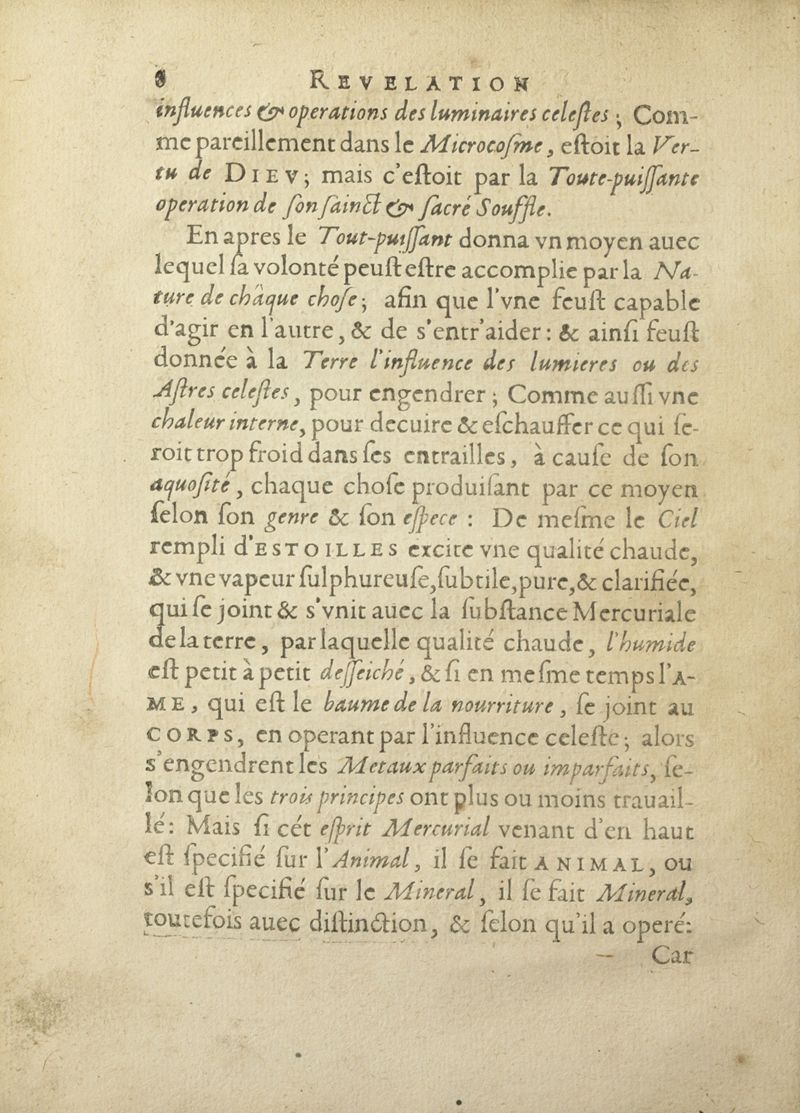 8 REVELATION
influences & operations des luminaires celeſtes; Com-
me pareillement dans le Microcoſme, eſtoit la Ver-
tu de DIEV; mais c'eſtoit par la Toute-puiſſante
operation de ſon ſainct & ſacré Souffle.
En apres le Tout-puiſſant donna vn moyen auec
lequel ſa volonté peuſt eſtre accomplie par la Na-
ture de chàque choſe; afin que l'vne feuſt capable
d'agir en l'autre, & de s'entr'aider: & ainſi feuſt
donnée à la Terre l'influence des lumieres ou des
Aſtres celeſtes, pour engendrer; Comme auſſi vne
chaleur interne, pour decuire & eſchauffer ce qui ſe-
roit trop froid dans ſes entrailles, à cauſe de ſon
aquoſité, chaque choſe produiſant par ce moyen
ſelon ſon genre & ſon eſpece : De meſme le Ciel
rempli d'ESTOILLES excite vne qualité chaude,
& vne vapeur ſulphureuſe, ſubtile, pure, & clarifiée,
qui ſe joint & s'vnit auec la ſubſtance Mercuriale
de la terre, par laquelle qualité chaude, l'humide
eſt petit à petit deſſeiché, & ſi en meſme temps l'A-
ME, qui eſt le baume de la nourriture, ſe joint au
CORPS, en operant par l'influence celeſte; alors
s'engendrent les Metaux parfaits ou imparfaits, ſe-
lon que les trois principes ont plus ou moins trauail-
lé: Mais ſi cét eſprit Mercurial venant d'en haut
eſt ſpecifié ſur l'Animal, il ſe fait ANIMAL, ou
s'il eſt ſpecifié ſur le Mineral, il ſe fait Mineral,
toutefois auec diſtinction, & ſelon qu'il a operé:
Car